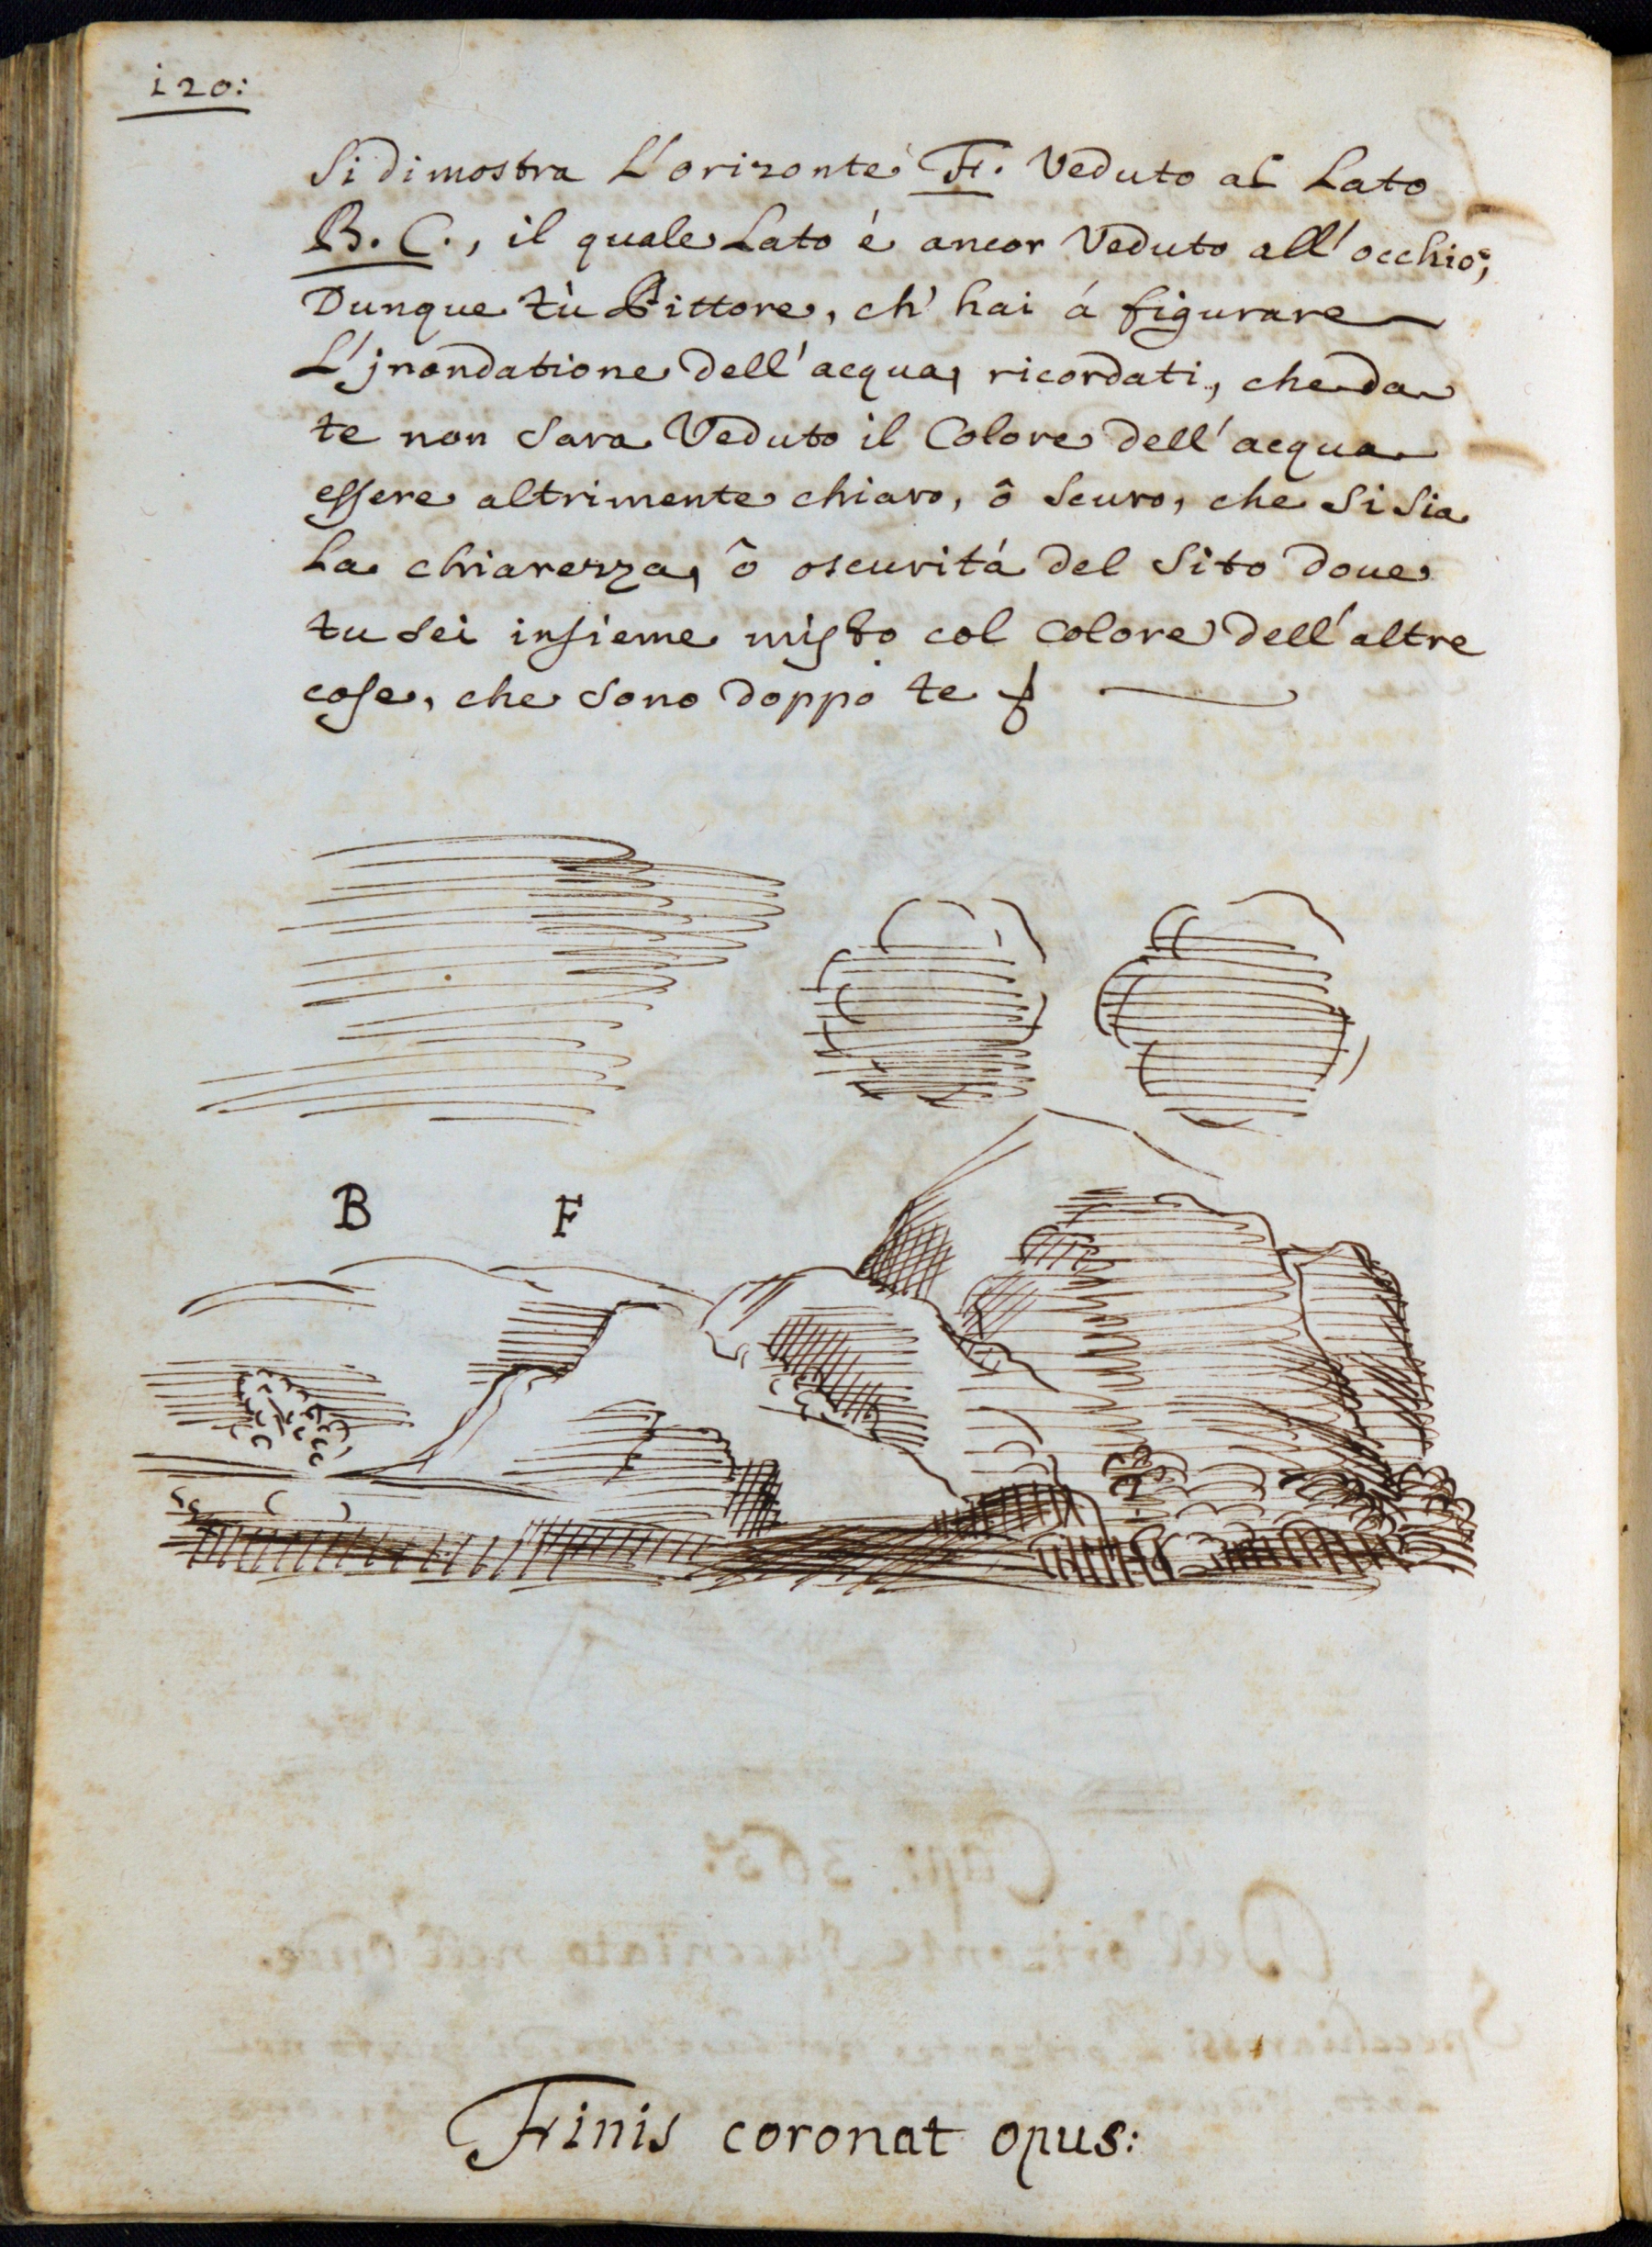 i20:
Si dimostra L'orizonte F. Veduto al Lato
B. C., il quale Lato é ancor Veduto all'occhio;
Dunque tù Pittore, ch' hai á figurare
L'jnondatione dell'acqua, ricordati, che da
te non sara Veduto il Colore dell'acqua
essere altrimente chiaro, ô scuro, che si sia
La chiarezza, ô oscuritá del Sito doue
tu sei insieme misto col colore dell'altre
cose, che sono doppo te
B F
Cap. 365.
Dell'orizonte specchiato nell'onde.
Finis coronat opus: